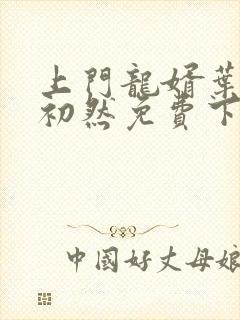 上門龍婿葉
初然免費下
中國好丈母娘